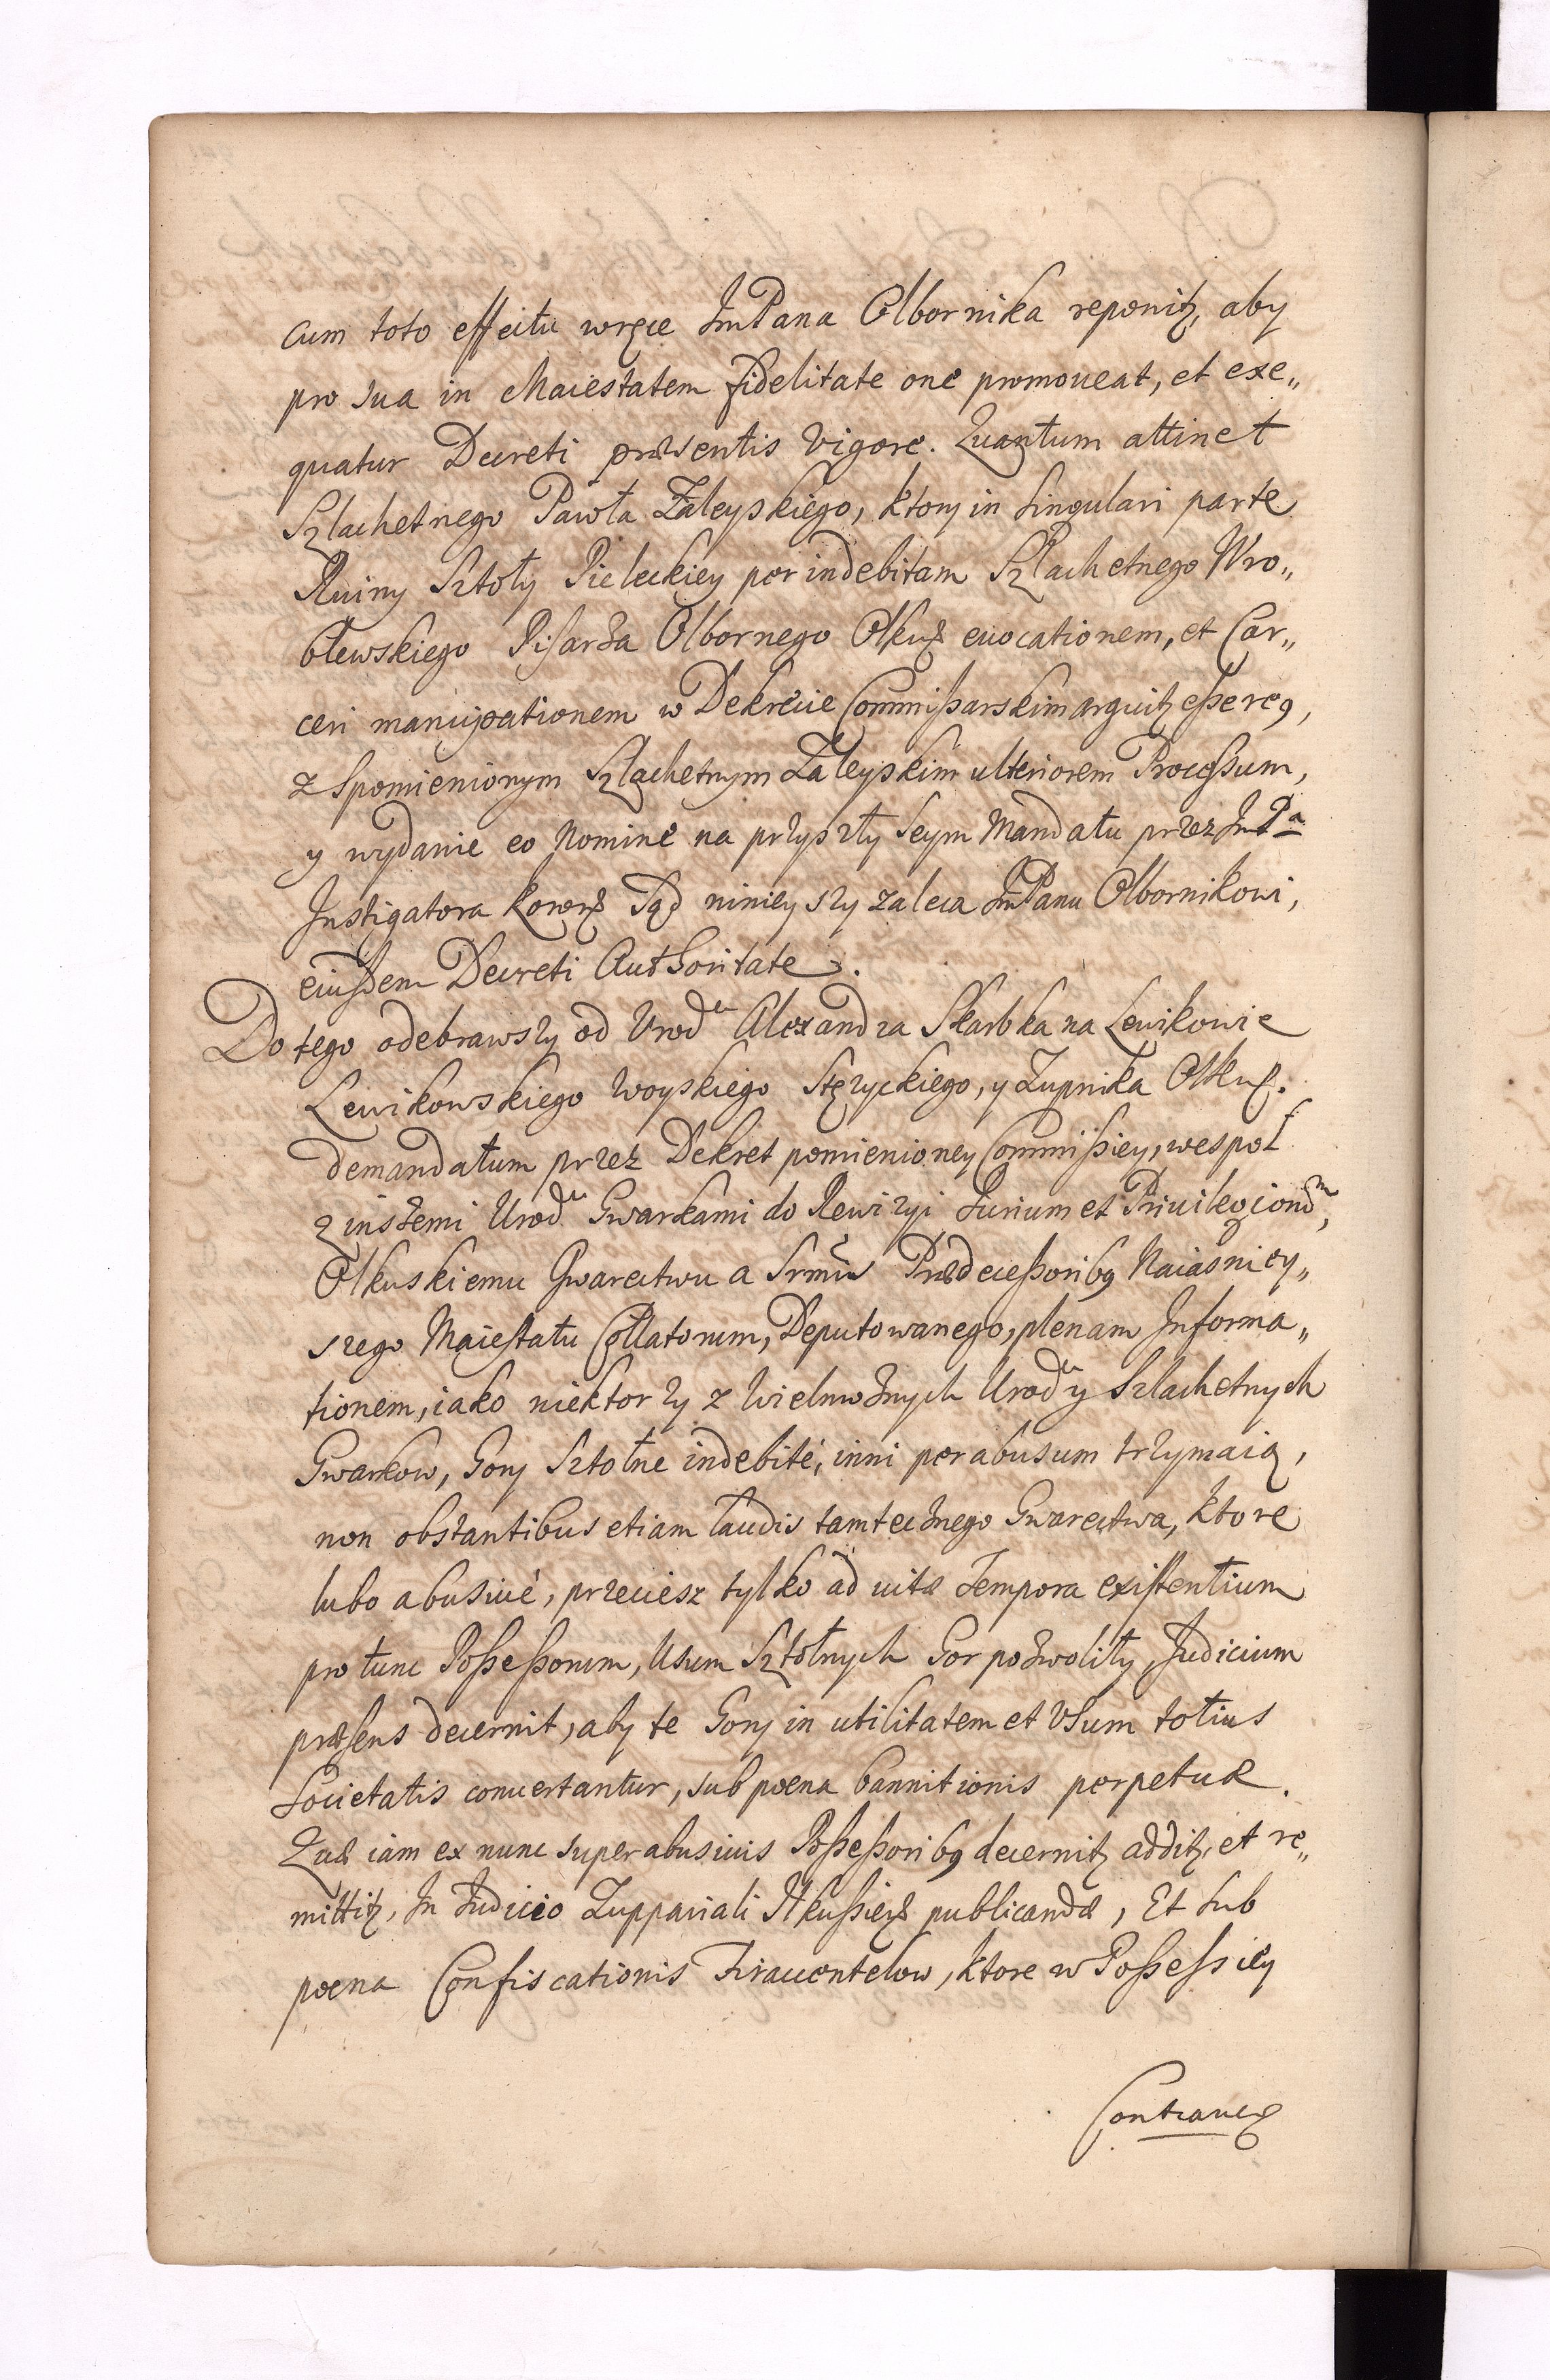 cum toto effectu w ręce JmPana Olbornika reponit, aby
pro sua in Maiestatem fidelitate one promoueat, et exe„
quatur Decreti præsentis vigore. Quantum attinet
Szlachetnego Pawła Zaleyskiego, ktory in singulari parte
Ruiny Sztoły Pieleckiey per indebitam Szlachetnego Wro„
blewskiego Pisarza Olbornego Olkus euocationem, et Car„
ceri mancipationem w Dekrecie Commissarskim arguit esse reg,
z spomienionym Szlachetnym Zaleyskim ulteriorem Processum,
y wydanie eo Nomine na przyszły Seym Mandatu przez JmPa
Instigatora Koron Sąd ninieyszy zaleca JmPanu Olbornikowi,
eiusdem Decreti Authoritate.
Do tego odebrawszy od Urod Alexandra Skarbka na Lewikowie
Lewikowskiego Woyskiego Stężyckiego, y Zupnika Olkus.
demandatum przez Dekret pomienioney Commissiey, wespoł
z inszemi Urod Gwarkami do Rewizyi Iurium et Priuilegiorum,
Olkuskiemu Gwarectwu a Srmis Prædecessoribg Naiasniey„
szego Maiestatu Collatorum, Deputowanego, plenam Informa„
tionem, iako niektorzy z Wielmożnych Urod y Szlachetnych
Gwarkow, Gory Sztolne indebitè, inni per abusum trzymaią,
non obstantibus etiam laudis tamtecznego Gwarectwa, ktore
lubo abusiuè, przeciesz tylko ad uitæ tempora existentium
pro tunc Possessorum, Usum Sztolnych Gor pozwoliły, Iudicium
præsens decernit, aby te Gory in utilitatem et Usum totius
Societatis conuertantur, sub poena bannitionis perpetuæ.
Quæ iam ex nunc super abusiuis Possessoribg decernit, addit, et re„
mittit, In Iudicio Zuppariali Ilkussien publicandæ, Et sub
poena Confiscationis Firauentelow, ktore w Possessiey